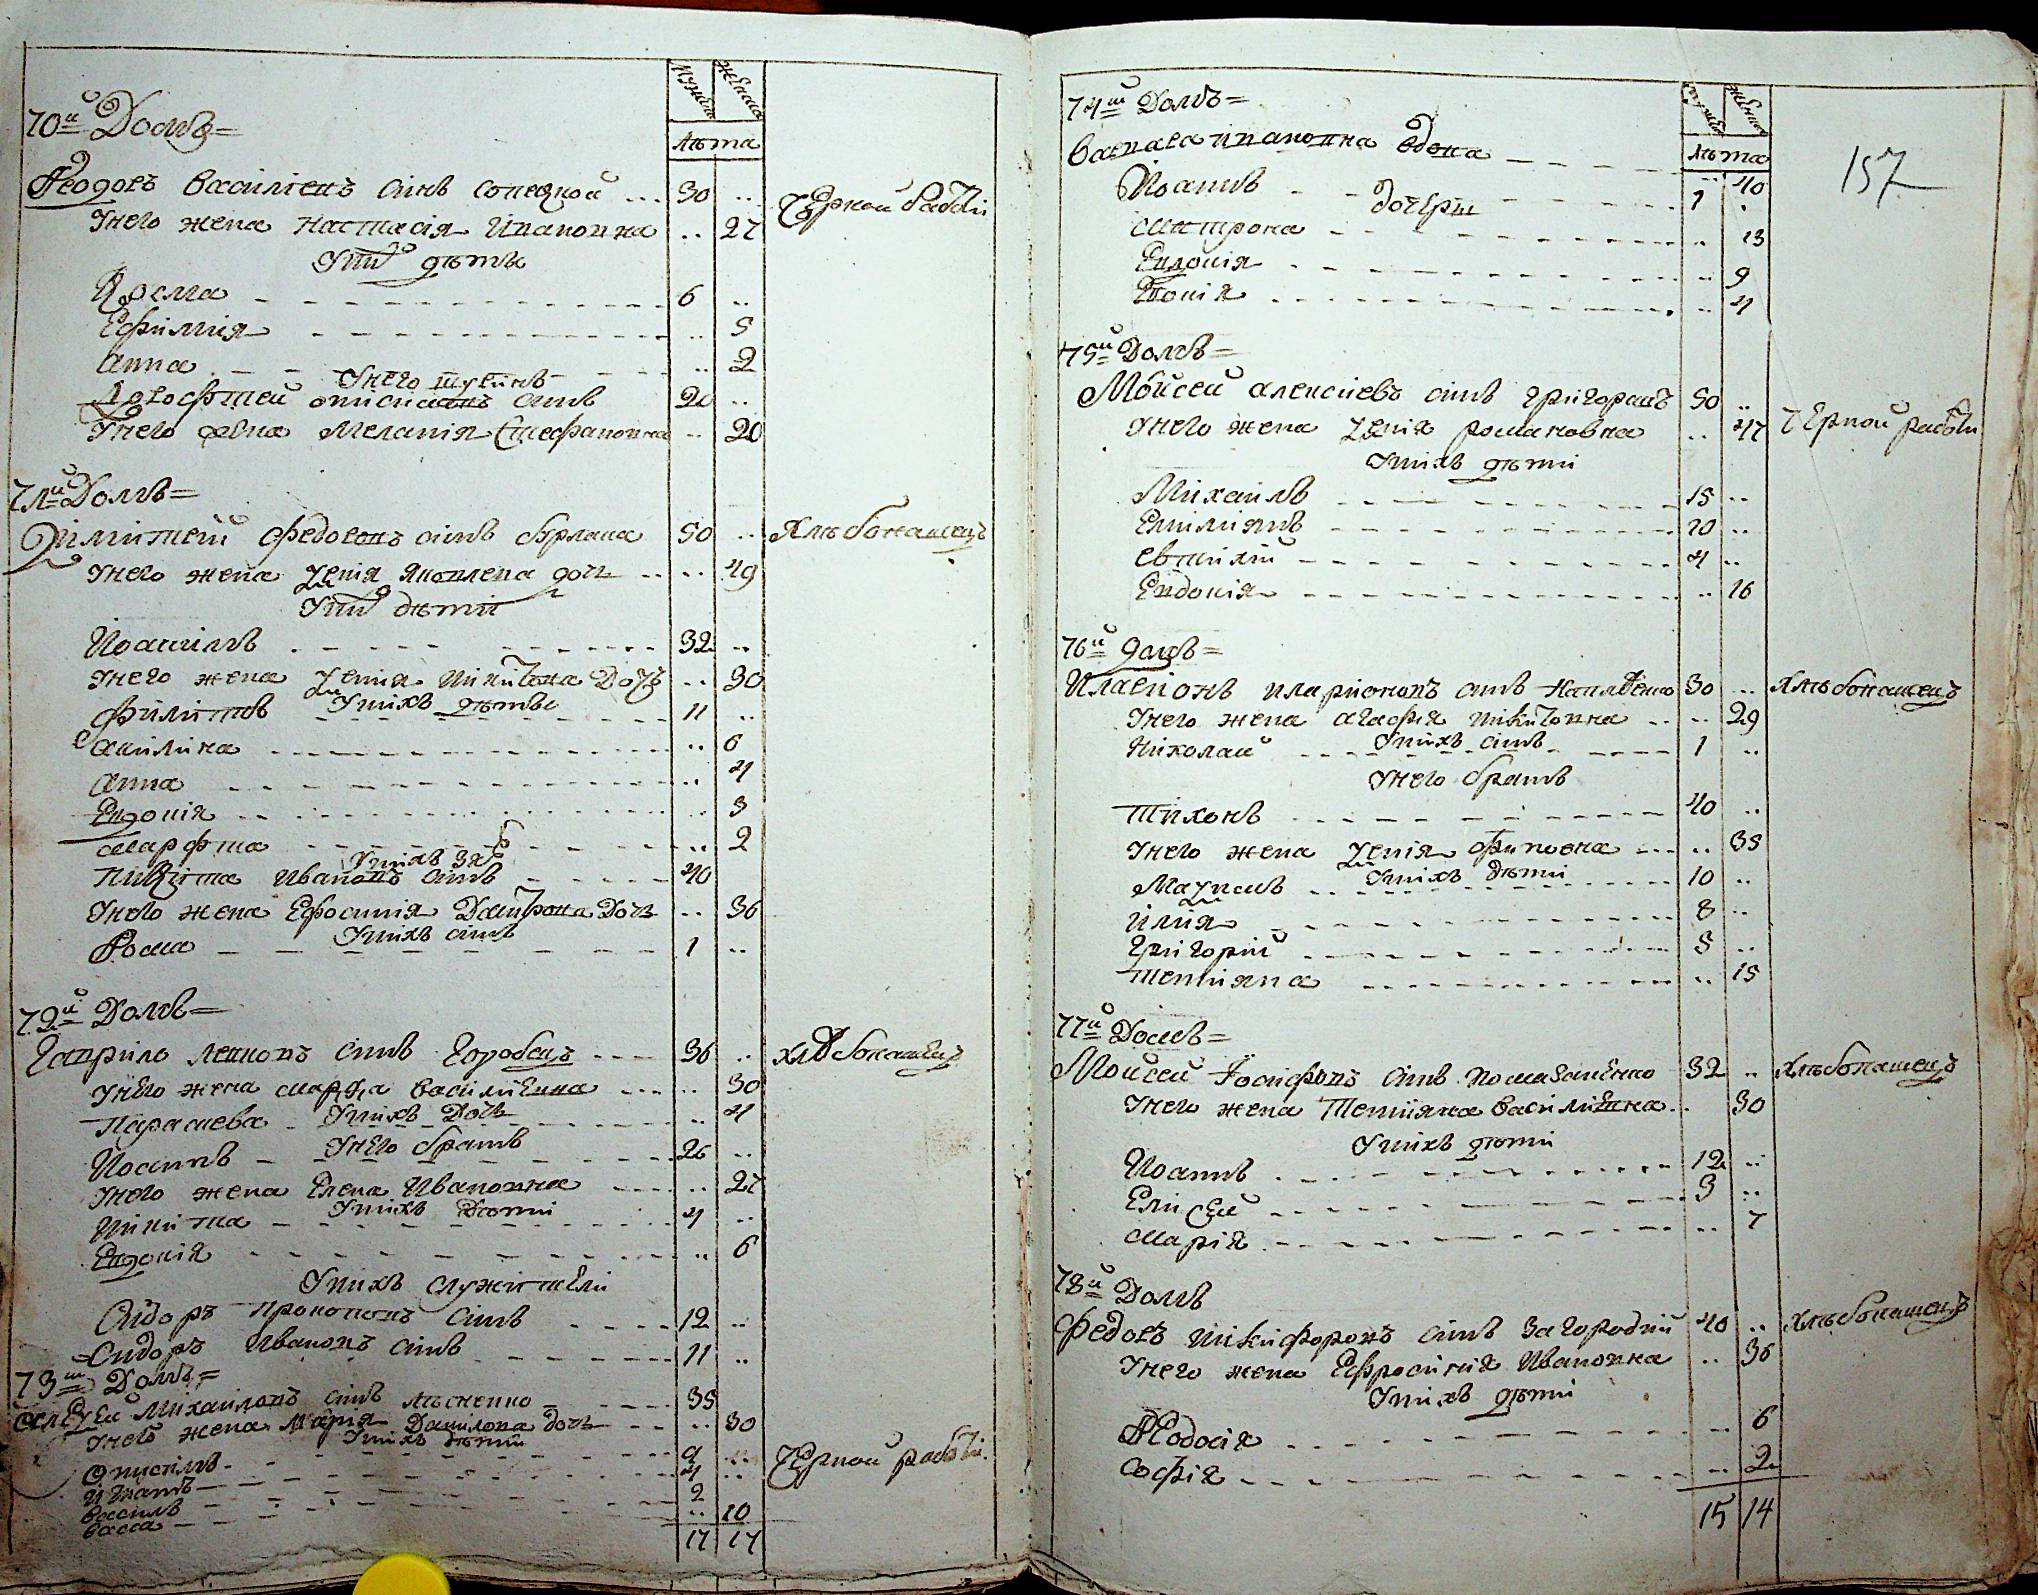 Мужеска Женска
Лѣта
70й Домъ=
Феодоръ Василіевъ синъ ... 30 .. Черной работи
Унего жена Настасія Ивановна .. 27
Уних дѣты
Козма 6 ..
Ефимія .. 5
Анна .. 2
Унего шуринъ
Дорофтей Онисимовъ синъ 20 ..
Унего жена Меланія Стефановна .. 20
71й Домъ=
Димитрій Федоровъ синъ Бурлака 50 .. Хлѣбопашецъ
Унего жена Ксенія Яковлева дочъ .. 49
Уних дѣти
Йоакимъ 32 ..
Унего жена Ксенія Никитова Дочъ .. 30
Унихъ дѣты
Филиппъ 11 ..
Акилина .. 6
Анна .. 4
Евдокія .. 3
Марфта .. 2
Унихъ зять
Никита Ивановъ синъ 40
Унего жена Ефросинія Дмитрова Дочъ .. 36
Унихъ синъ
Фома 1 ..
72й Домъ=
Гаврило Леоновъ Синъ Горобецъ 36 .. Хлѣбопашецъ
Унего жена Марфа Василиевна .. 30
Унихъ Дочъ
Параскева .. 4
Унего братъ
Йосипъ 26 ..
Унего жена Елена Ивановна .. 27
Унихъ Дѣти
Никита 4 ..
Евдокія .. 6
Унихъ служители
Сидоръ Прокоповъ Синъ 12 ..
Сидоръ Ивановъ Синъ 11 ..
73й Домъ=
Алексей Михаиловъ синъ Лѣсненко 35
Унего жена Мария Данилова дочъ .. 30
Унихъ дѣти
Онисимъ 9 .. Черной работи.
Игнатъ 4 ..
Василь 2
Васса .. 10
17 17
157
Лѣта
74й Домъ=
Варвара Ивановна вдова .. 40
Йоаннъ 1 .
дочери
Матрона .. 13
Евдокія .. 9
.. 4
75й Домъ=
Мойсей Алексіевъ синъ Григоращъ 50 .. Черной работи
Унего жена Ксенія Романовна .. 47
Унихъ дѣти
Михаилъ 15 ..
Емилиянъ 10 ..
Евтихій 4 ..
Евдокія .. 16
76й домъ=
Иларионъ Иларионовъ синъ 30 .. Хлѣбопашецъ
Унего жена Агафія Никитовна .. 29
Унихъ синъ
Николай 1 ..
Унего братъ
Тихонъ 40 ..
Унего жена Ксенія .. 35
Унихъ дѣти
Максимъ 10 ..
Илия 8 ..
Григорий 5 ..
Тетияна .. 15
77й Домъ=
Мойсей Іосифовъ Синъ Помазаненко 32 .. Хлѣбопашецъ
Унего жена Тетияна Василиевна .. 30
Унихъ дѣти
Йоаннъ 12 ..
Елисей 3 ..
Марія .. 7
78й Домъ
Федоръ Никифоровъ синъ Загородній 40 .. Хлѣбопашецъ
Унего жена Ефросинія Ивановна .. 36
Унихъ дѣти
Феодосія .. 6
Софія .. 2
15 14